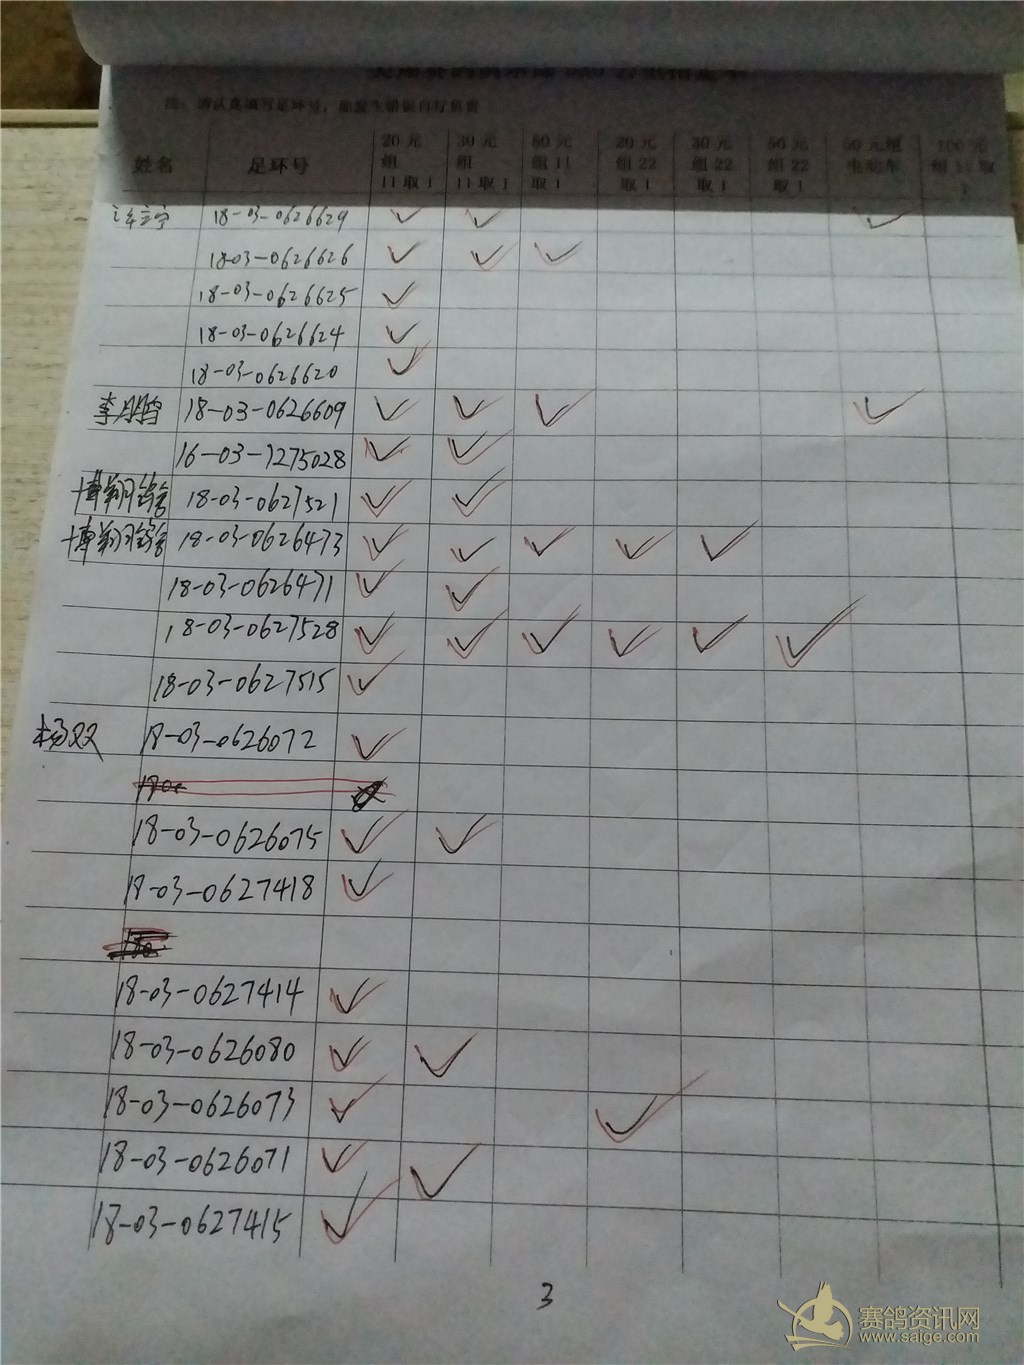 注：请认真填写足环号，如发生错误自行负责
姓名 足环号 20元组11取1 30元组11取1 50元组11取1 20元组22取1 30元组22取1 50元组22取1 50元组电动车 100元组11取1
18-03-0626629 ✓ ✓ ✓
18-03-0626626 ✓ ✓ ✓
18-03-0626625 ✓
18-03-0626624 ✓
18-03-0626620 ✓
李鹏 18-03-0626609 ✓ ✓ ✓ ✓
16-03-1275028 ✓ ✓
博翔鸽舍 18-03-0627521 ✓ ✓
博翔鸽舍 18-03-0626473 ✓ ✓ ✓ ✓ ✓
18-03-0626471 ✓ ✓
18-03-0627528 ✓ ✓ ✓ ✓ ✓ ✓
18-03-0627515 ✓
杨双 18-03-0626072 ✓
18-03-0626075 ✓ ✓
18-03-0627418 ✓
18-03-0627414 ✓
18-03-0626080 ✓ ✓
18-03-0626073 ✓ ✓
18-03-0626071 ✓ ✓
18-03-0627415 ✓
3
赛鸽资讯网
www.saige.com